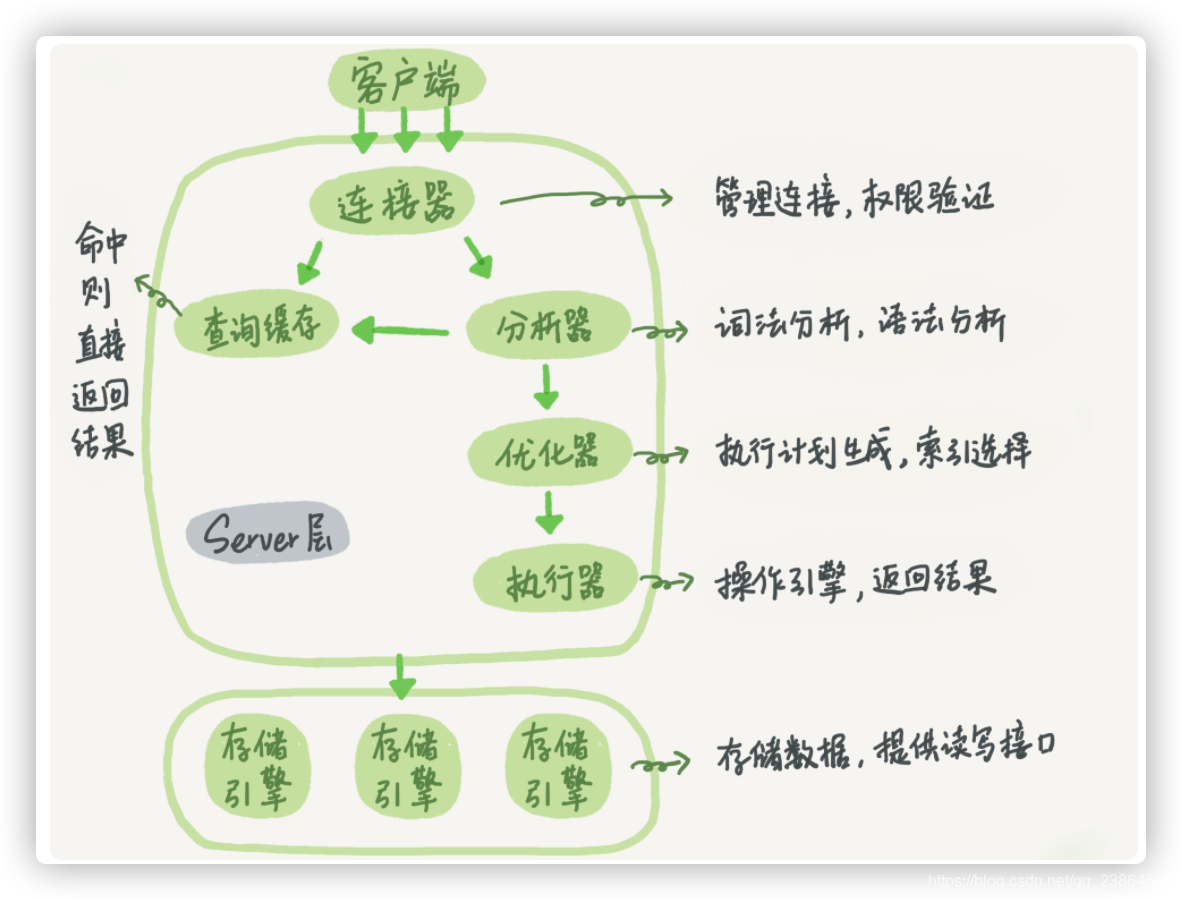 客户端
连接器
管理连接，权限验证
命中
则
直接
返回
结果
查询缓存
分析器
词法分析，语法分析
优化器
执行计划生成，索引选择
Server层
执行器
操作引擎，返回结果
存储
引擎
存储
引擎
存储
引擎
存储数据，提供读写接口